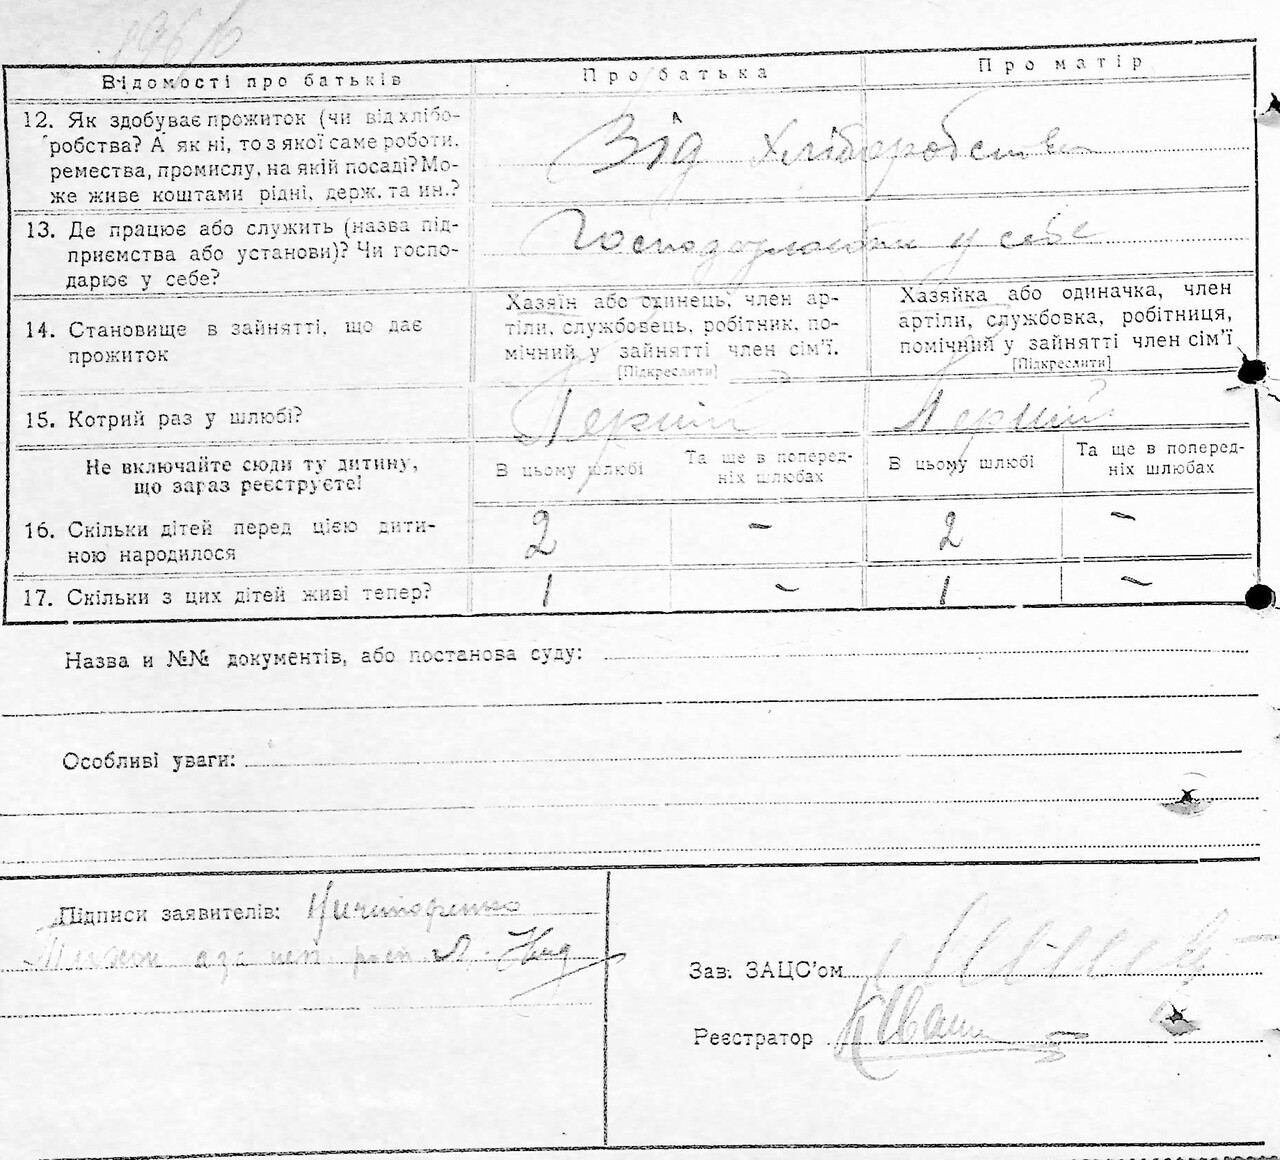 Відомості про батьків
Про батька
Про матір
12. Як здобуває прожиток (чи від хлібо-
робства? А як ні, то з якої саме роботи,
ремества, промислу, на якій посаді? Мо-
же живе коштами рідні, держ. та ин.?
Від Хліборобства
13. Де працює або служить (назва під-
приємства або установи)? Чи госпо-
дарює у себе?
у себе
14. Становище в зайнятті, що дає
прожиток
Хазяїн або одинець, член ар-
тіли, службовець, робітник, по-
мічний у зайнятті член сім'ї.
[Підкреслити]
Хазяйка або одиначка, член
артіли, службовка, робітниця,
помічний у зайнятті член сім'ї
[Підкреслити]
15. Котрий раз у шлюбі?
Перший
Перший
Не включайте сюди ту дитину,
що зараз реєструєте!
В цьому шлюбі
Та ще в поперед-
ніх шлюбах
В цьому шлюбі
Та ще в поперед-
ніх шлюбах
16. Скільки дітей перед цією дити-
ною народилося
2
–
2
–
17. Скільки з цих дітей живі тепер?
1
–
1
–
Назва и №№ документів, або постанова суду:
Особливі уваги:
Підписи заявителів:
Зав. ЗАЦС'ом
Реєстратор